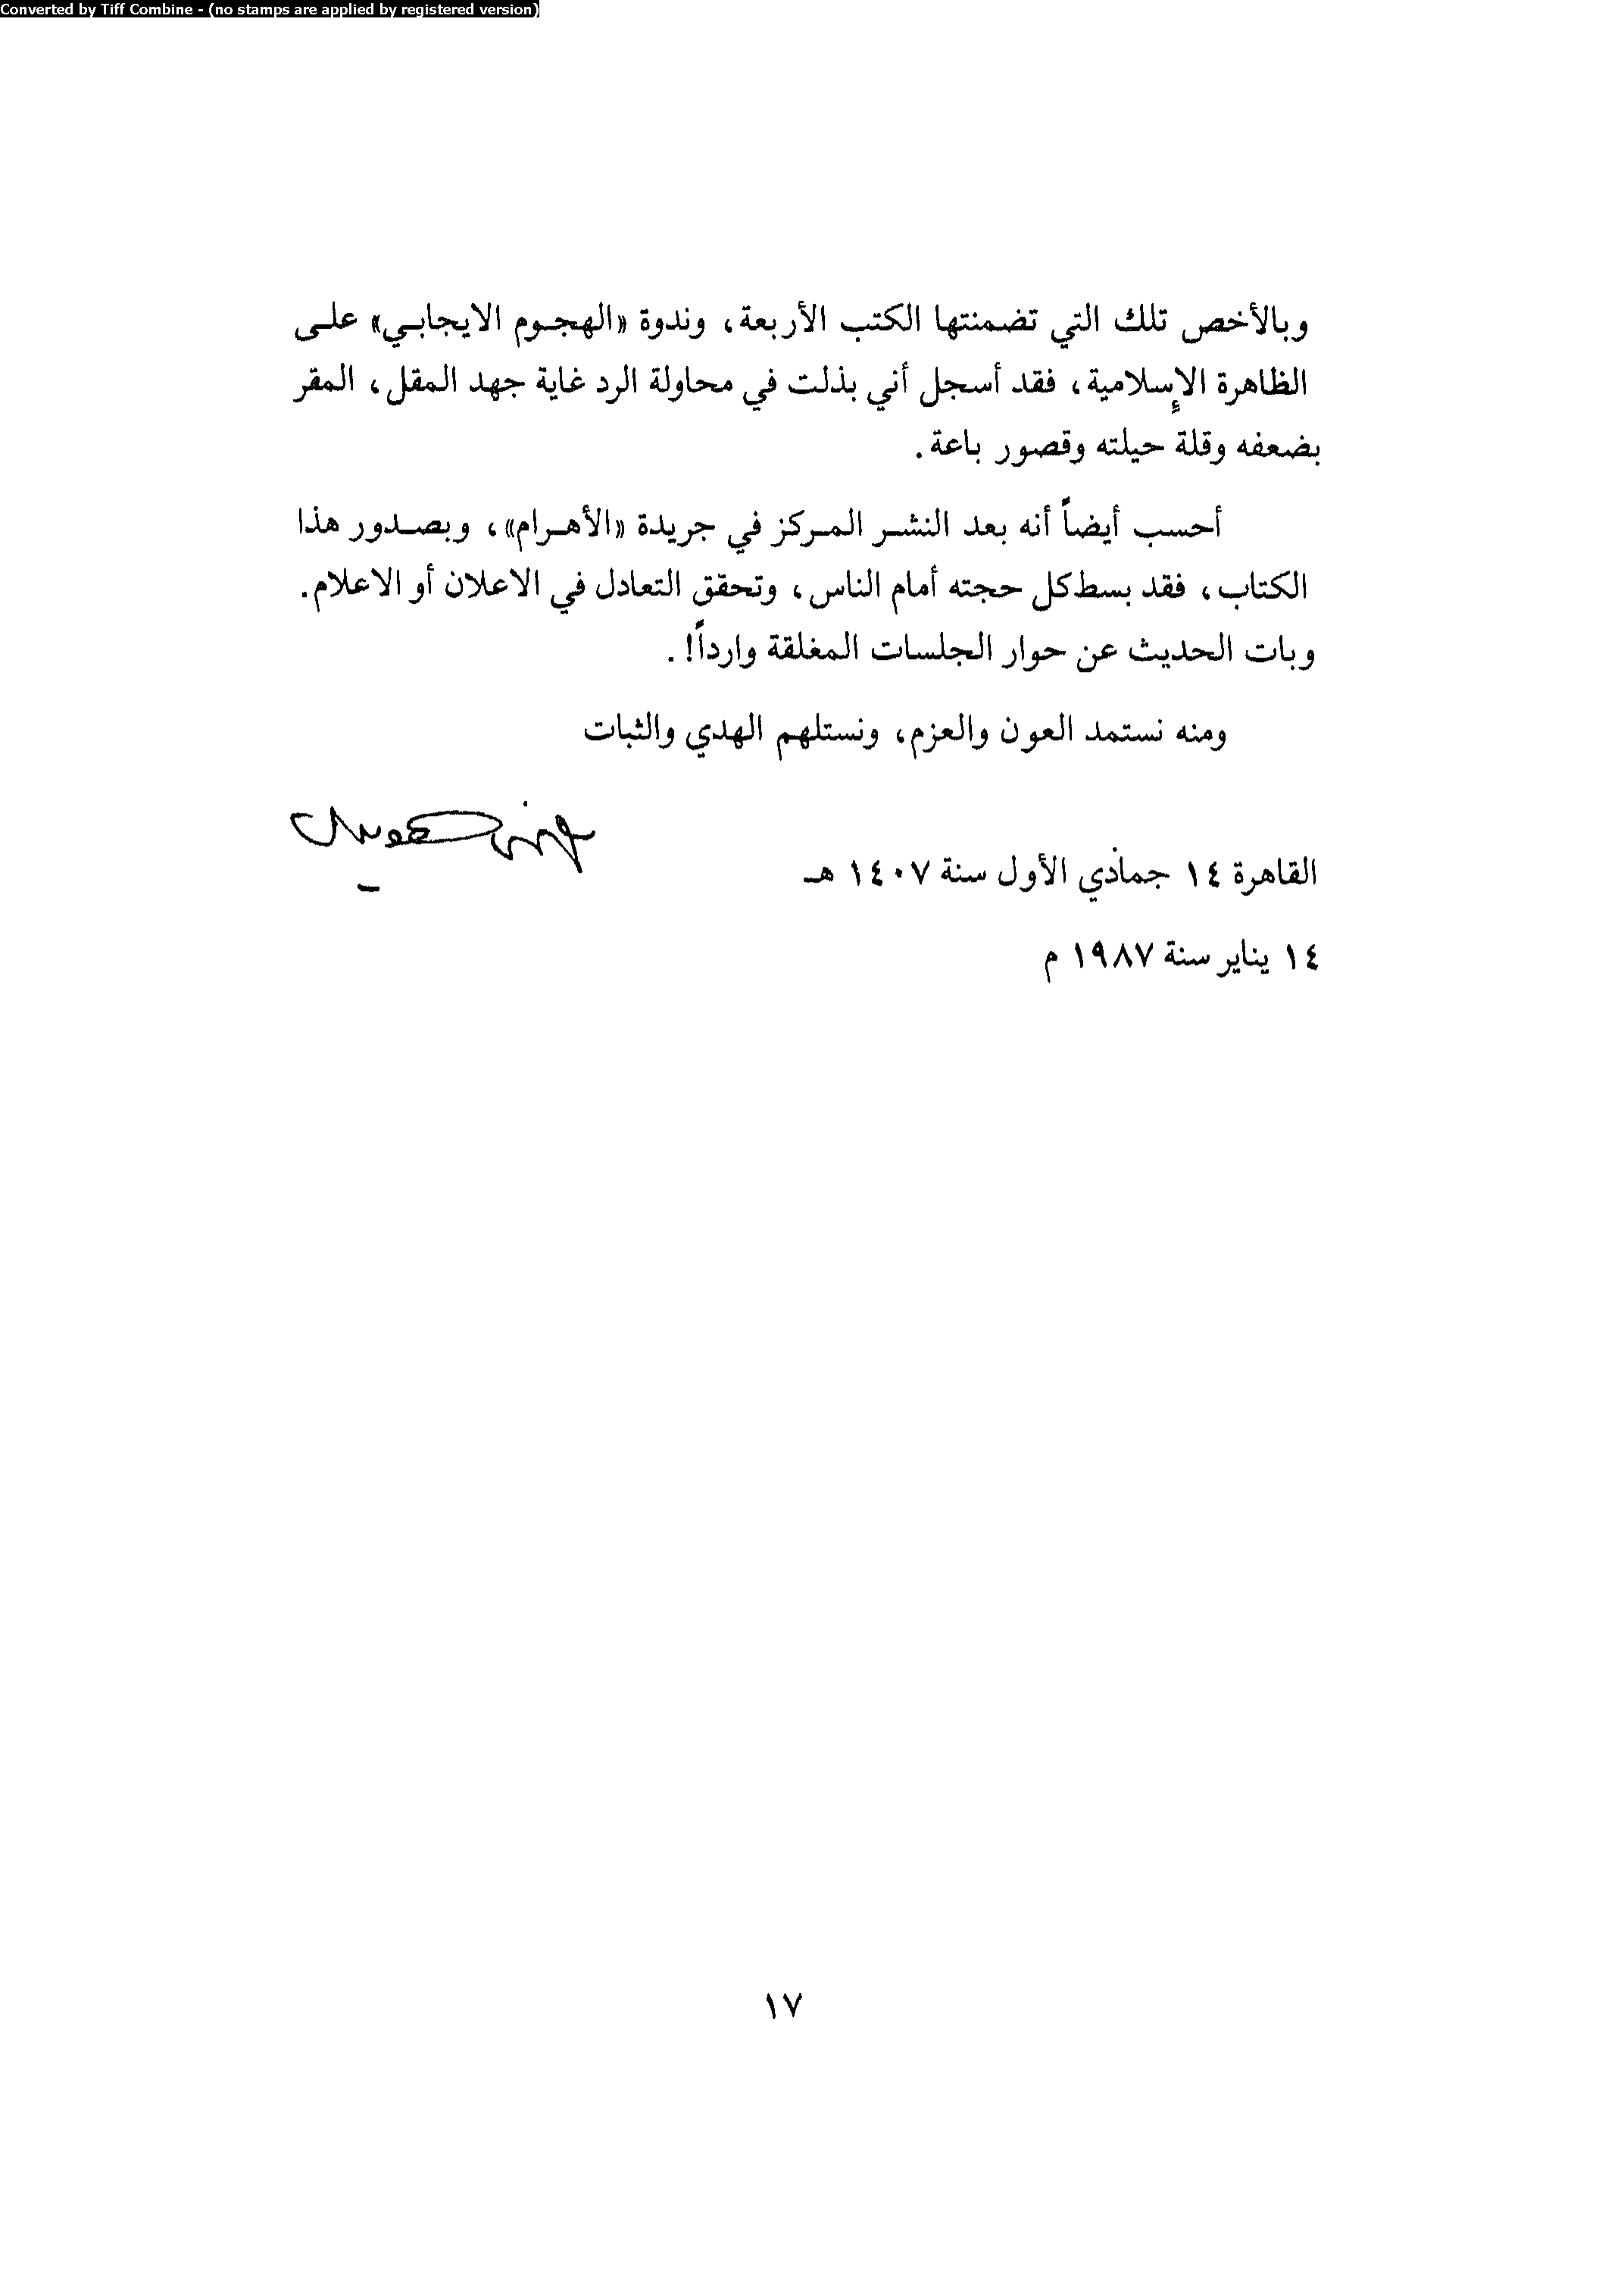 Converted by Tiff Combine - (no stamps are applied by registered version)
وبالأخص تلك التي تضمنتها الكتب الأربعة، وندوة «الهجوم الايجابي» على
الظاهرة الإسلامية، فقد أسجل أني بذلت في محاولة الرد غاية جهد المقل، المقر
بضعفه وقلة حيلته وقصور باعة.
أحسب أيضاً أنه بعد النشر المركز في جريدة «الأهرام»، وبصدور هذا
الكتاب، فقد بسط كل حجته أمام الناس، وتحقق التعادل في الاعلان أو الاعلام.
وبات الحديث عن حوار الجلسات المغلقة وارداً!.
ومنه نستمد العون والعزم، ونستلهم الهدي والثبات
القاهرة ١٤ جماذي الأول سنة ١٤٠٧ هـ
١٤ يناير سنة ١٩٨٧ م
١٧